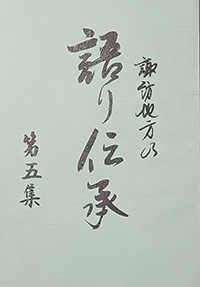 諏訪地方の
語り伝承
第五集